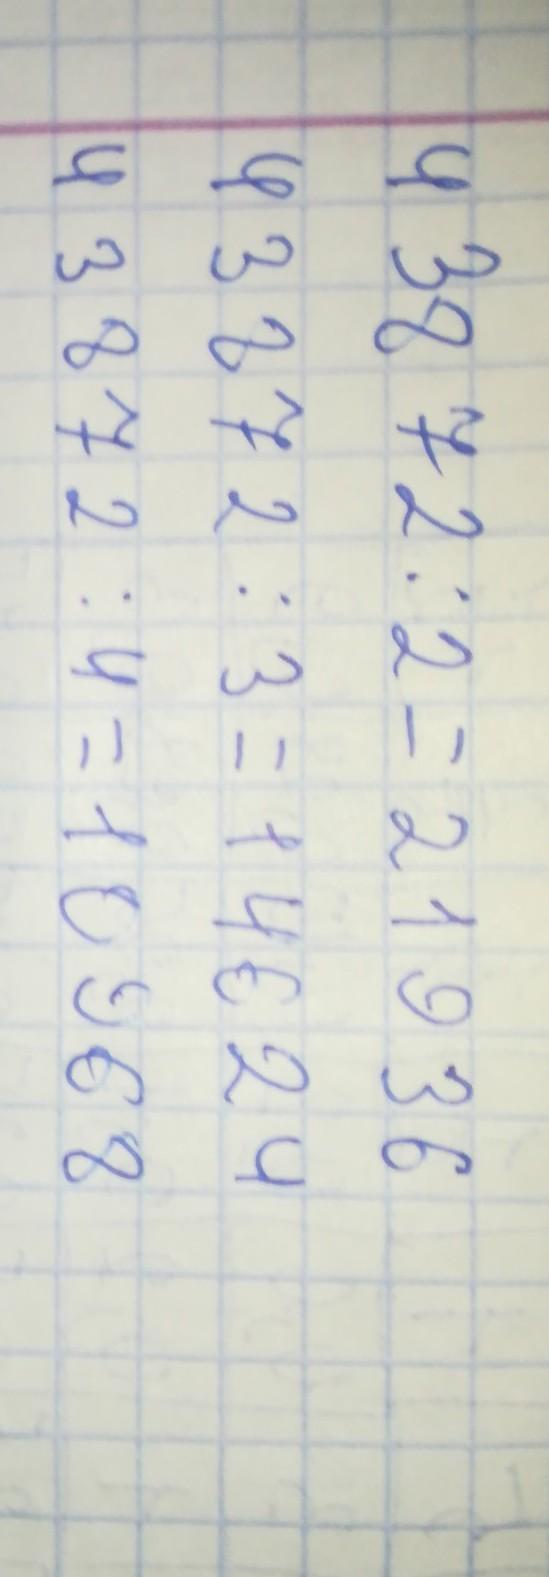 43872:2=21936
43872:3=14624
43872:4=10968